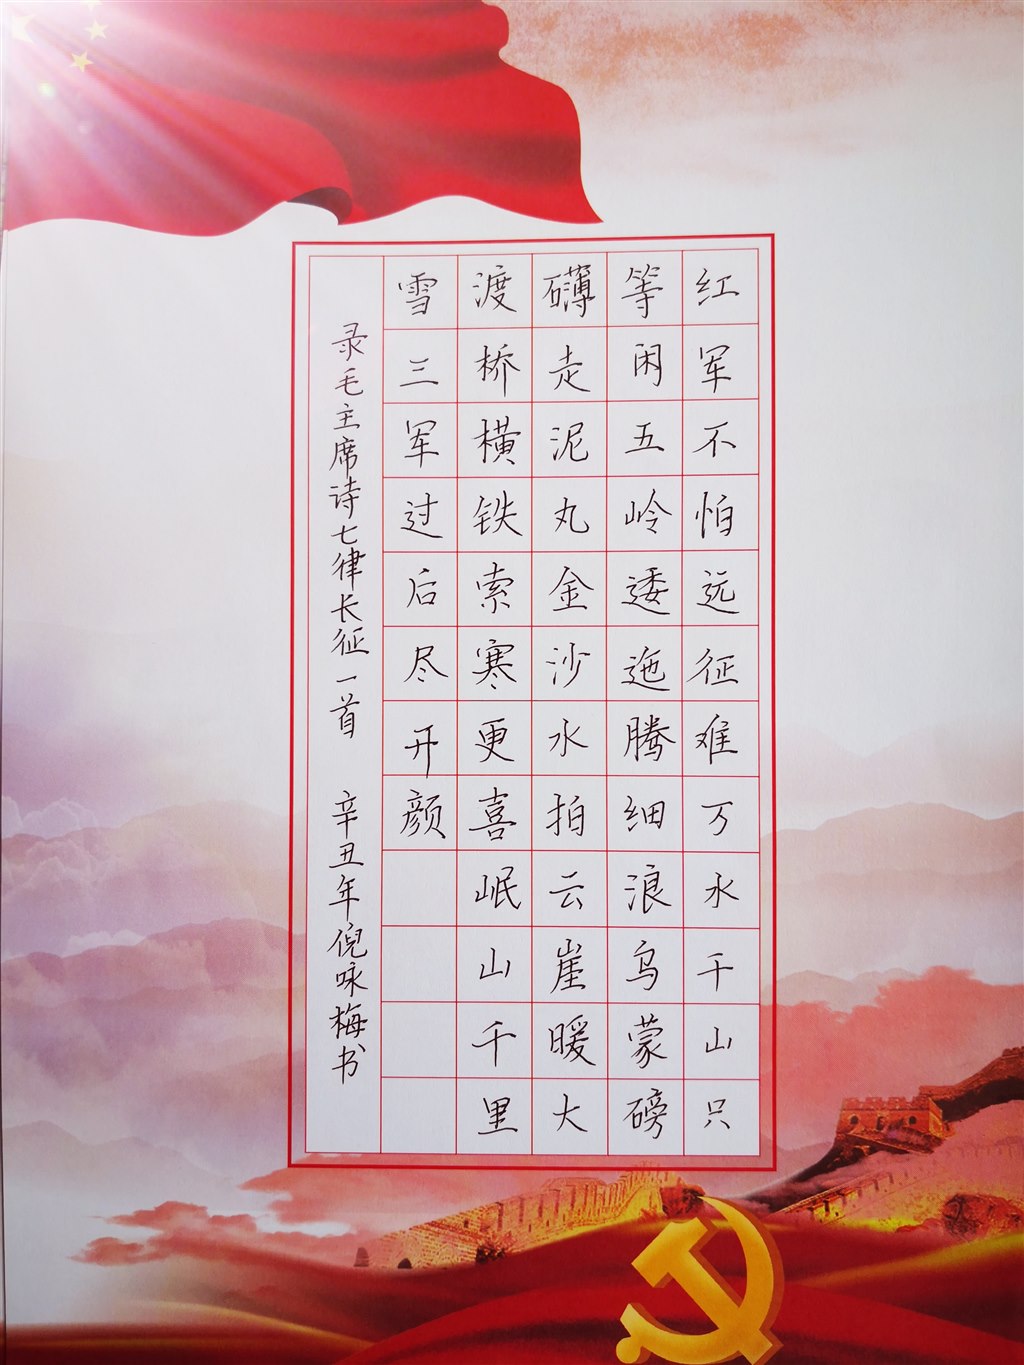 红军不怕远征难万水千山只
等闲五岭逶迤腾细浪乌蒙磅
礴走泥丸金沙水拍云崖暖大
渡桥横铁索寒更喜岷山千里
雪三军过后尽开颜
录毛主席诗七律长征一首 辛丑年倪咏梅书